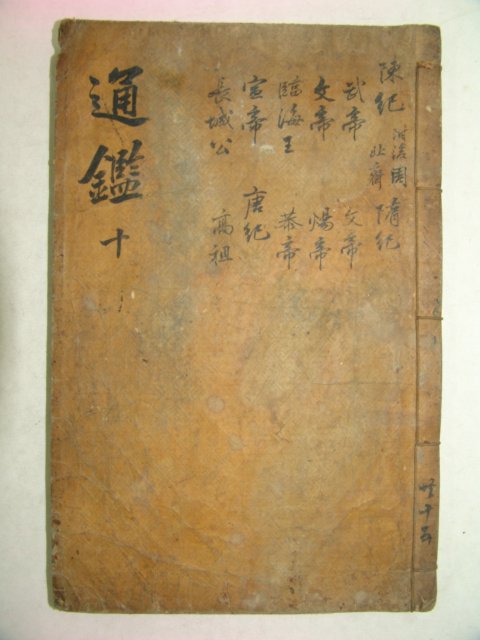 通鑑
十
陳紀
附後周
北齊
隋紀
武帝
文帝
文帝
煬帝
臨海王
恭帝
宣帝
唐紀
長城公
高祖
共十五